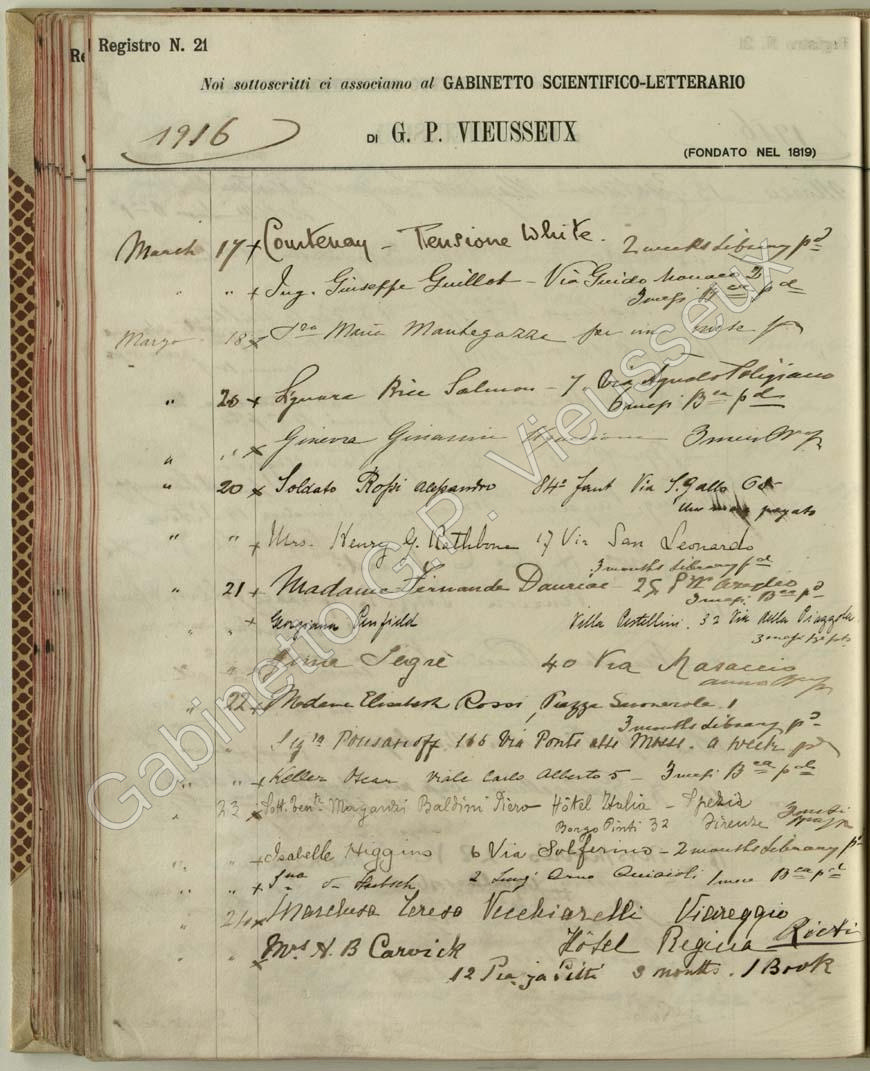 Registro N. 21
Noi sottoscritti ci associamo al GABINETTO SCIENTIFICO-LETTERARIO
1916
DI G. P. VIEUSSEUX
(FONDATO NEL 1819)
March 17 x Courtenay - Pensione White. 2 weeks Library pd
" " x Ing. Giuseppe Guillot - Via Guido Monaco 2
3 mesi Bca pd
Marzo 18 x Maria Mantegazza per un mese
" 20 x Rice Salmon - 7, Via Agnolo Poligiano
6 mesi Bca pd
" " x Ginevra 3 mesi
" 20 x Soldato Rossi Alessandro 84° Fant Via S. Gallo
un mese pagato
" " x Mrs. Henry G. Rathbone 17 Via San Leonardo
3 months Library pd
" 21 x Madame Fernande Dauriac - 25
3 mesi Bca pd
" " x Georgiana Penfield Villa Pestellini. 32 Via della Piazzola
3 mesi
" " x Segrè 40 Via Masaccio
anno
" 22 x Madame Elisabeth Rossi, Piazza Savonarola. 1
3 months Library pd
" Sigra Pousanoff, 166 Via Ponte alle Mosse. a week pd
" " x Keller Oscar Viale Carlo Alberto 5 - 3 mesi Bca pd
" 23 x Baldini Piero Hôtel Italia - Spezia
Borgo Pinti 32 Firenze
" " x Isabelle Higgins 6 Via Solferino - 2 months Library pd
" " x 2 Lung' Arno Acciaioli 1 mese Bca pd
" 24 x Marchesa Teresa Vecchiarelli Viareggio
" " x Mrs H. B Carwick Hôtel Regina - Rieti
12 Piazza Pitti 3 months. 1 Book
Gabinetto G.P. Vieusseux